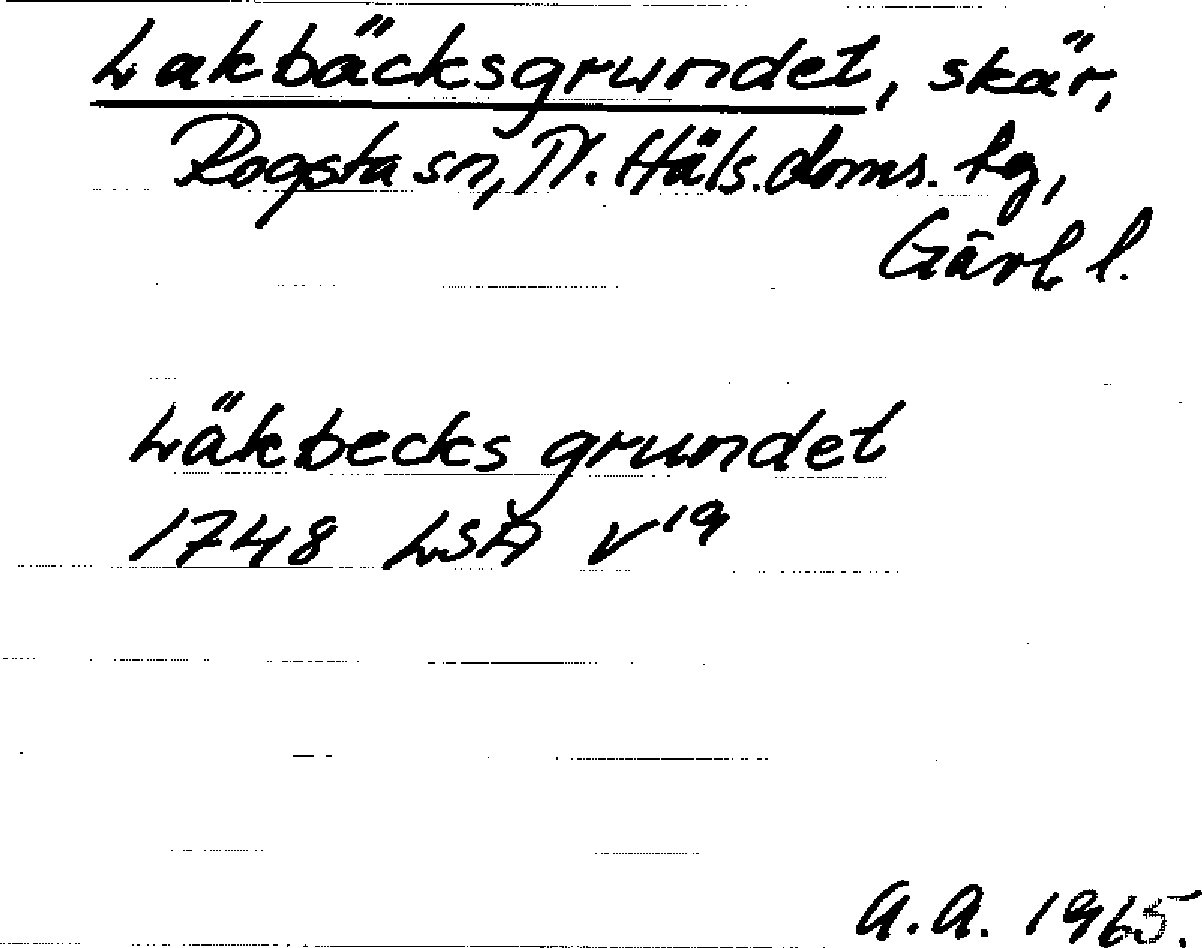 Lakbäcksgrundet, skär,
Rogsta sn, N. Häls. doms. hg,
Gävl. l.
Läkbecks grundet
1748 LSA V 19
A.A. 1965.